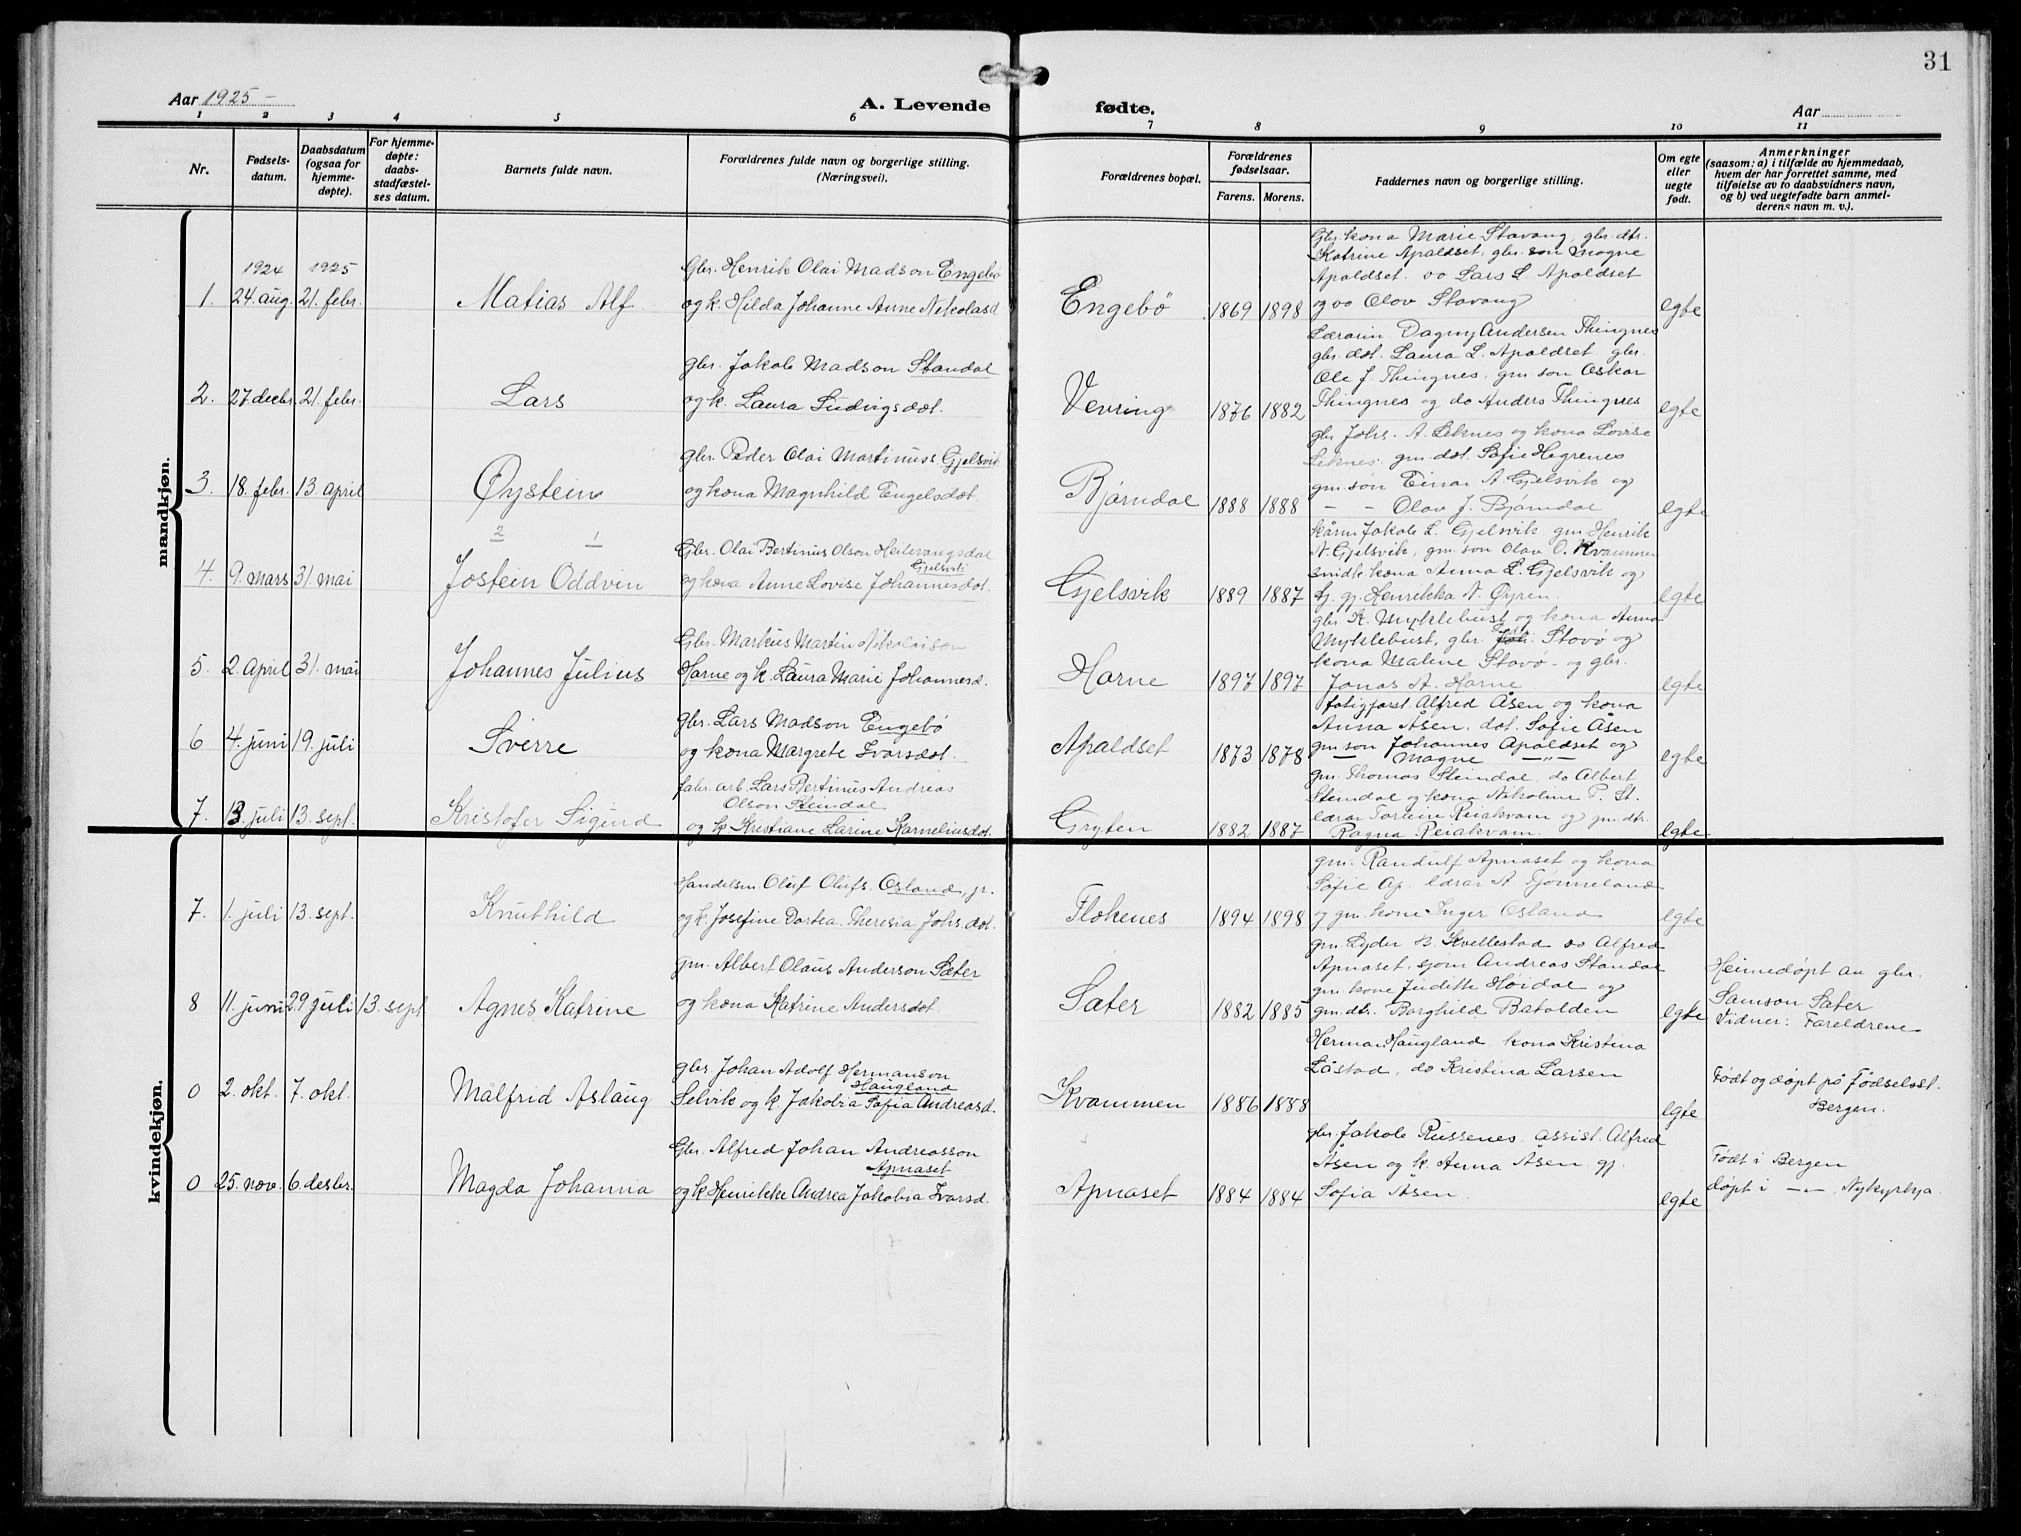 31
Aar 1925 –
A. Levende fødte.
Aar
1 2 3 4 5 6 7 8 9 10 11
Nr.
Fødsels-
datum.
Daabsdatum
(ogsaa for
hjemme-
døpte).
For hjemme-
døpte:
daabs-
stadfæstel-
ses datum.
Barnets fulde navn.
Forældrenes fulde navn og borgerlige stilling.
(Næringsvei).
Forældrenes bopæl.
Forældrenes
fødselsaar.
Farens. Morens.
Faddernes navn og borgerlige stilling.
Om egte
eller
uegte
født.
Anmerkninger
(saasom: a) i tilfælde av hjemmedaab,
hvem der har forrettet samme, med
tilføielse av to daabsvidners navn,
og b) ved uegtefødte barn anmel-
derens navn m. v.).
mandkjøn.
1924 1925
1. 24. aug. 21. febr. Matias Alf
Gbr. Henrik Olai Madson Engebø
og k. Hilda Johanne Anne Nikolasd
Engebø 1869 1898
Gbr. kona Marie Stavang, gbr. dtr.
Katrine Apaldset, gbr. son Mogne
Apaldset. oo Lars L. Apaldset
og oo Olov Stavang
egte
2. 27. decbr. 21. febr. Lars
gbr. Jakob Madson Standal
og k. Laura Ludvigsdot.
Vevring 1876 1882
Lærarin. Dagny Andersen Thingnes
gbr. dot. Laura L. Apaldset, gbr.
Ole J. Thingnes, gm. son Oskar
Thingnes og do Anders Thingnes
egte
3. 18. febr. 13. april Øystein
gbr. Peder Olai Martinuss. Gjelsvik
og kona Magnhild Engelsdot.
Bjørndal 1888 1888
gbr. Johs. A. Leknes og kona Lovise
Leknes. gm. dot. Sofie Hegrenes
gm. son Einar A. Gjelsvik og
– – Olav J. Bjørndal
egte
2 1
4. 9. mars 31. mai Jostein Oddven
Gbr. Olai Bertinus Olson Heilevangsdal
Gjelsvik
og kona Anne Lovise Johannesdot.
Gjelsvik 1889 1887
kårm. Jakob L. Gjelsvik, gm. Henrik
N. Gjelsvik, gm. son Olav O. Kvammen
smidk. kona Anna L. Gjelsvik og
tj. gj. Henrikka N. Øyren.
egte
5. 2. april 31. mai Johannes Julius
Gbr. Markus Martin Nikolaison
Horne og k. Laura Marie Johannesd.
Horne 1897 1897
gbr. K. Myklebust og kona Anna
Myklebust, gbr. Joh. Stavø og
kona Maline Stavø – og gbr.
Jonas A. Horne
egte
6 4. juni 19. juli Sverre
gbr. Lars Madson Engebø
og kona Margrete Ivarsdot.
Apaldset 1873 1878
fatigforst. Alfred Åsen og kona
Anna Åsen, dot. Sofie Åsen
gm. son Johannes Apaldset og
— Magne —"—
egte
7. 13. juli 13. sept. Kristofer Sigurd
fabr. arb. Lars Bertinus Andreas
Olson Steindal
og k. Kristiane Larine Karneliusdot.
Gryten 1882 1887
gm. Thomas Steindal, do Albert
Steindal og kona Nikoline P. St.
lærar Torleiv Reiakvam og gm. dtr.
Ragna Reiakvam.
egte
kvindekjøn.
7. 1. juli 13. sept. Knuthild
Handelsm. Oluf Olufs. Osland, jr.
og k. Josefine Dortea Theresia Johs. dot.
Flokenes 1894 1898
gm. Randulf Apnaset og kona
Sofie Ap. lærar A. Tjønneland
og gm. kone Inger Osland
egte
8 11. juni 29. juli 13. sept Agnes Katrine
gm. Albert Olaus Anderson Sæter
og kona Katrine Andersdot.
Sæter 1882 1885
gm. Lyder B. Kvellestad do Alfred
Apnaset, sjøm Andreas Standal
gm. kone Judette Høidal og
gm. dtr. Borghild Batalden
egte
Heimedøpt av gbr.
Samson Sæter
Vidner: Foreldrene
0 2. okt. 7. okt. Målfrid Aslaug
gbr. Johan Adolf Hermanson
Haugland
Selvik og k. Jakobia Sofia Andreasd.
Kvammen 1886 1888
Herman Haugland, kona Kristina
Låstad, do Kristina Larsen
egte
Født og døpt på Fødselsst.
Bergen.
0 25. nov. 6. desbr. Magda Johanna
Gbr. Alfred Johan Andreasson
Apnaset
og k. Henrikke Andrea Jakobia Ivarsd.
Apnaset 1884 1884
gbr. Jakob Russenes. assist. Alfred
Åsen og k. Anna Åsen. gj.
Sofia Åsen.
egte
Født i Bergen
døpt i —"— Nykyrkja.